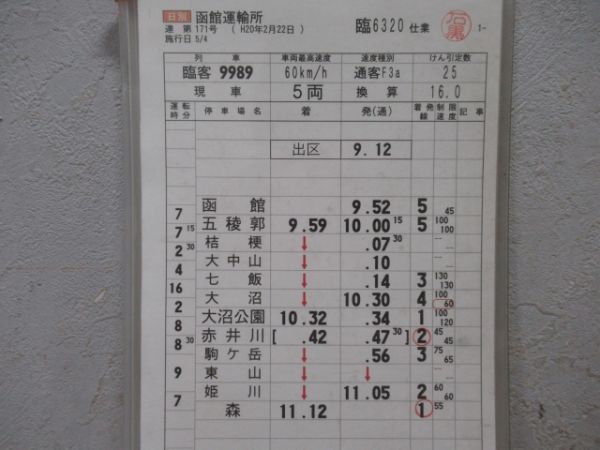 日別 函館運輸所
達 第171号 ( H20年2月22日 )
施行日 5/4
臨6320 仕業 石黒 1-
列車 車両最高速度 速度種別 けん引定数
臨客 9989 60km/h 通客F3a 25
現車 5両 換算 16.0
運転時分 停車場名 着 発(通) 着発線 制限速度 記事
出区 9.12
函館 9.52 5 45
7
五稜郭 9.59 10.00 15 5 100 100
7 15
桔梗 ↓ .07 30
2 30
大中山 ↓ .10
4
七飯 ↓ .14 3 130 130
16
大沼 ↓ 10.30 4 100 60
2
大沼公園 10.32 .34 1 100 120
8
赤井川 [ .42 .47 30 ] 2 45 45
8 30
駒ケ岳 ↓ .56 3 75 65
東山 ↓ ↓
9
姫川 ↓ 11.05 2 60 60
7
森 11.12 1 55